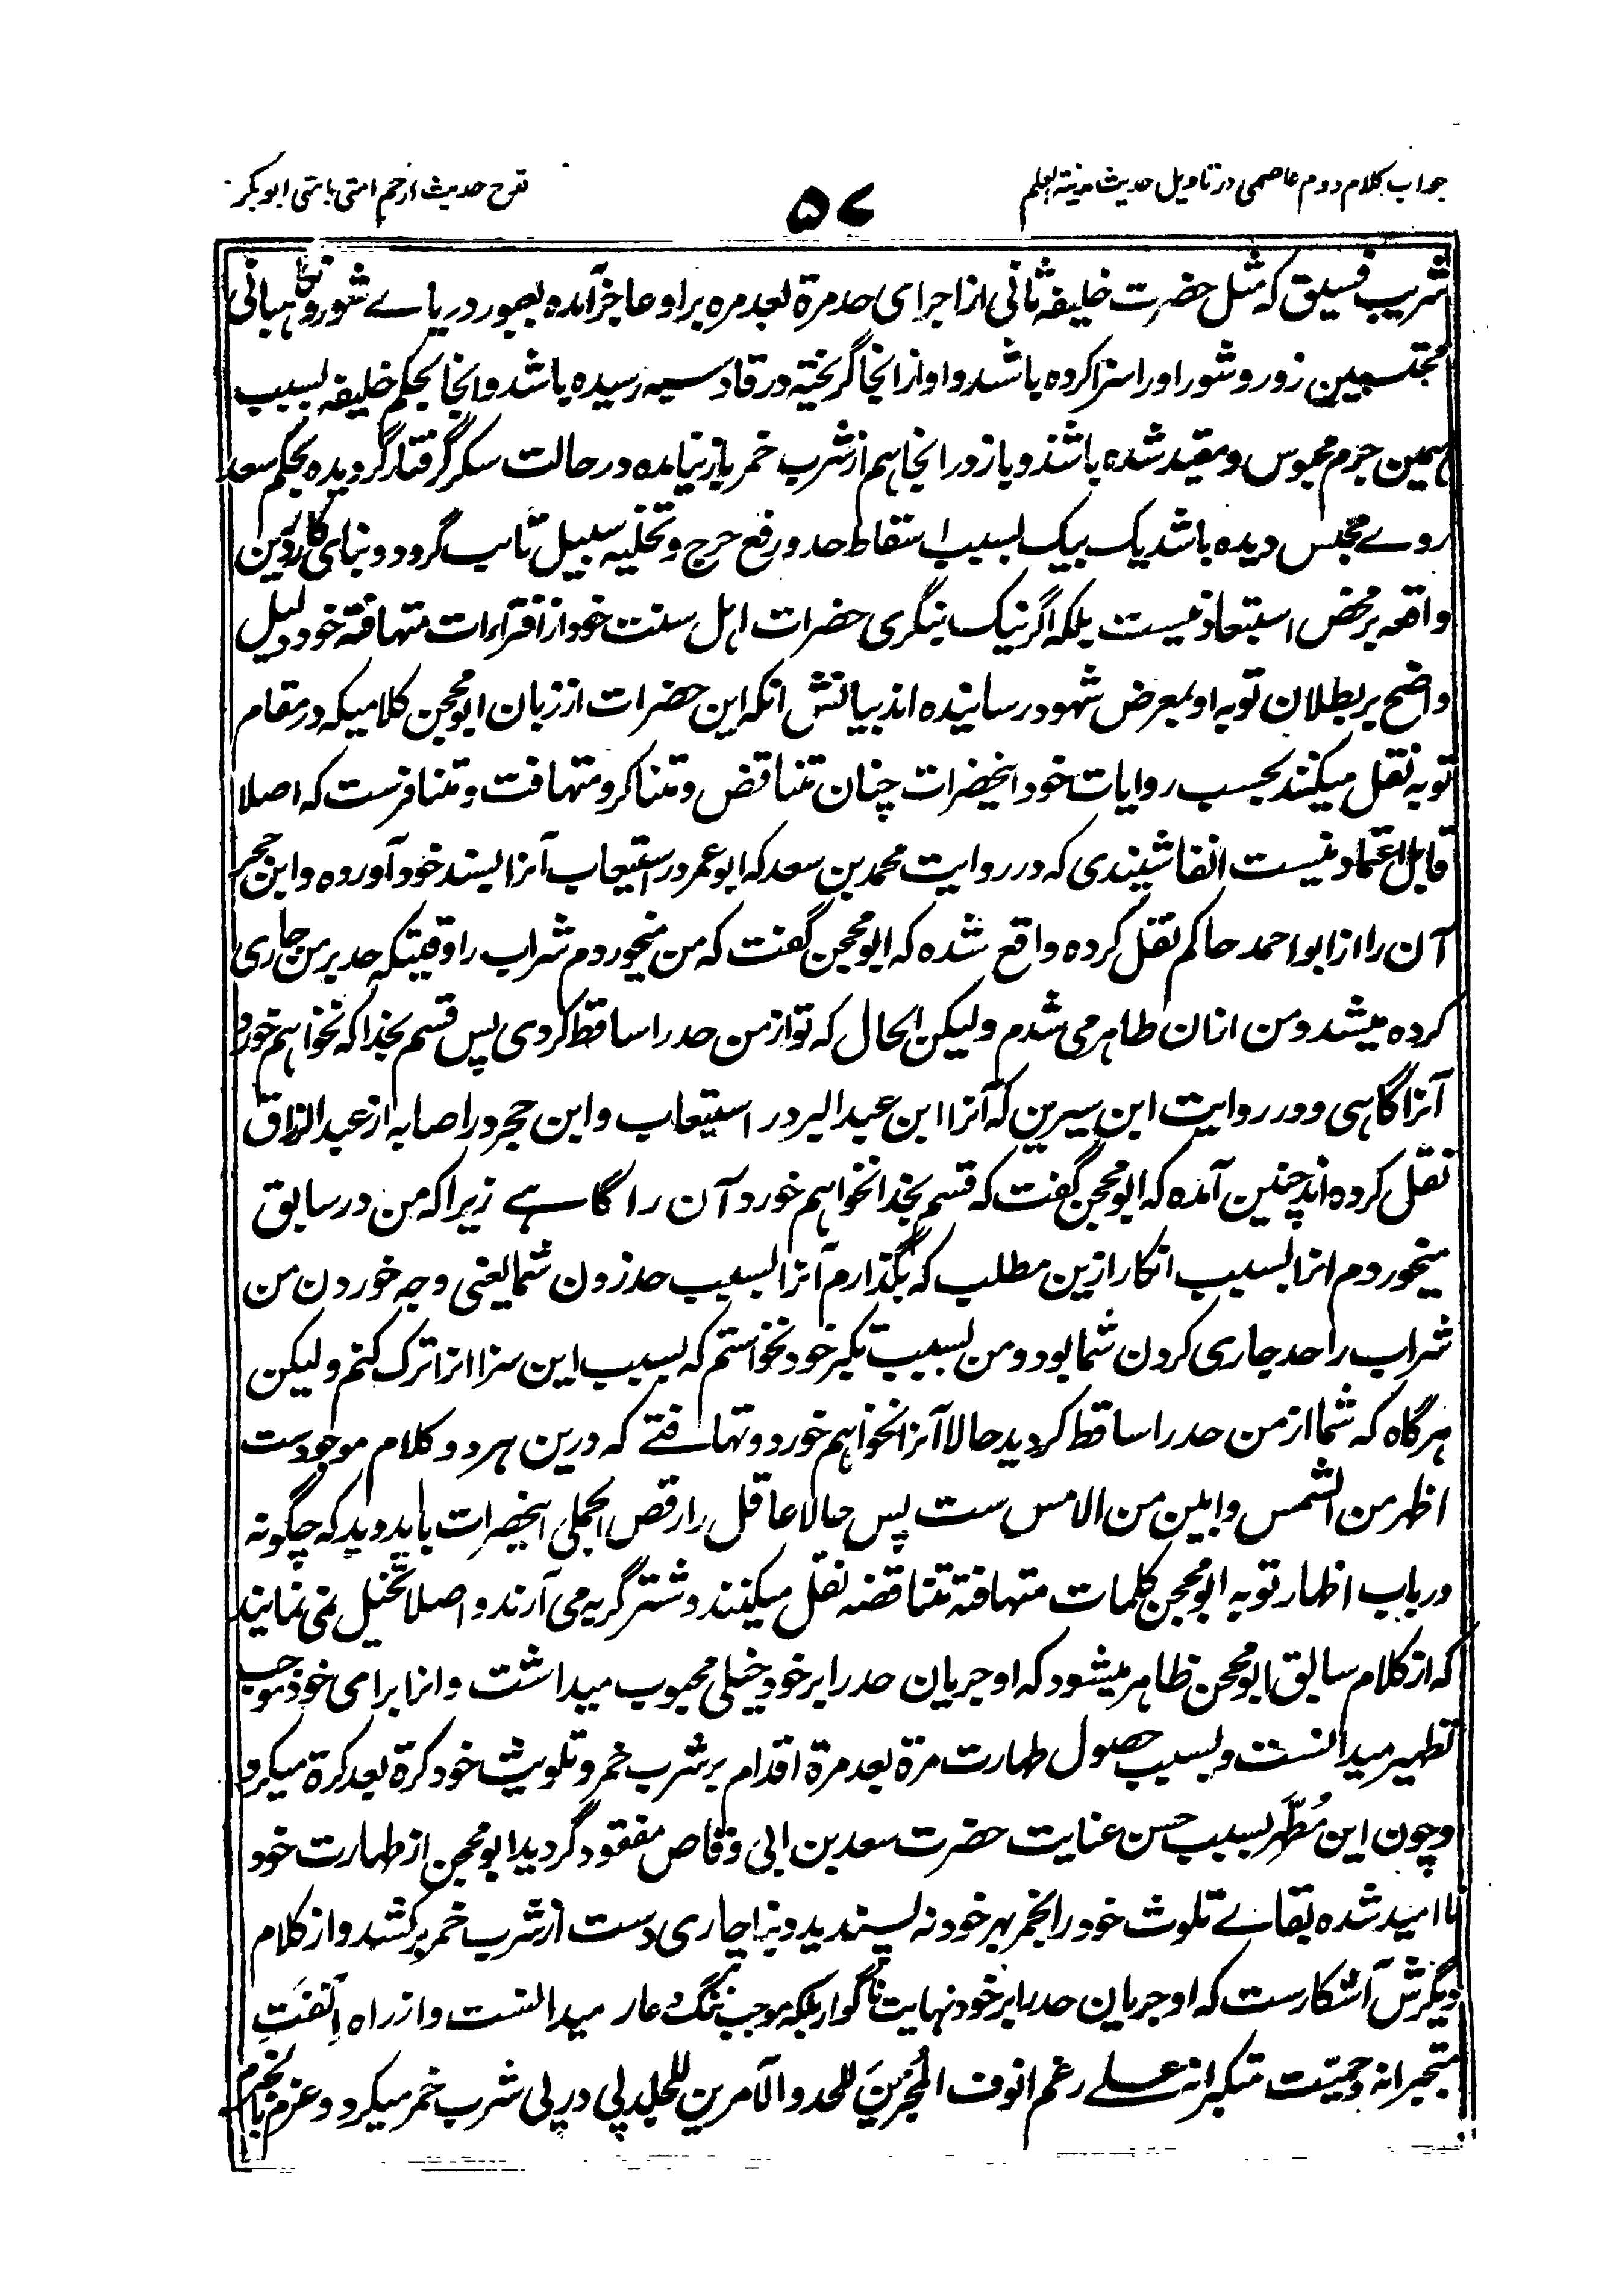 جواب کلام دوم عاصمی در تاویل حدیث مدینة العلم
۵۷
قدح حدیث ارحم امتی بامتی ابوبکر
شریب فسیق که مثل حضرت خلیفه ثانی از اجرای حد مرة بعد مره بر او عاجز آمده بعبور دریاے شور و
محتسبین زور و شور او را سزا کرده باشد و او از انجا گریخته در قادسیه رسیده باشد و انجا بحکم خلیفه بسبب
همین جرم محبوس و مقید شده باشد و باز در انجا هم از شرب خمر باز نیامده در حالت سکر گرفتار گردیده بحکم سعد
روے مجلس دیده باشد یک بیک بسبب اسقاط حد و رفع حرج و تخلیه سبیل تائب گردد و بنای کار درین
واقعه بر محض استبعاد نیست بلکه اگر نیک بنگری حضرات اهل سنت خود از افتراءات متهافته خود دلیل
واضح بر بطلان توبه او بمعرض شهود رسانیده اند بیانش انکه این حضرات از زبان ابو محجن کلامیکه در مقام
توبه نقل میکنند بحسب روایات خود اینحضرات چنان متناقض و متناکر و متهافت و متنافرست که اصلا
قابل اعتماد نیست انفا شنیدی که در روایت محمد بن سعد که ابو عمر در استیعاب آنرا بسند خود آورده و ابن حجر
آن را از ابو احمد حاکم نقل کرده واقع شده که ابو محجن گفت که من میخوردم شراب را وقتیکه حد بر من جاری
کرده میشد و من ازان طاهر می شدم و لیکن الحال که تو از من حد را ساقط کردی پس قسم بخدا که نخواهم خورد
آنرا گاهی و در روایت ابن سیرین که آنرا ابن عبد البر در استیعاب و ابن حجر در اصابه از عبد الرزاق
نقل کرده اند چنین آمده که ابو محجن گفت که قسم بخدا نخواهم خورد آن را گاهے زیرا که من در سابق
میخوردم انرا بسبب انکار ازین مطلب که بگذارم آنرا بسبب حد زدن شما یعنی وجه خوردن من
شراب را حد جاری کردن شما بود و من بسبب تکبر خود نخواستم که بسبب این سزا انرا ترک کنم و لیکن
هرگاه که شما از من حد را ساقط کردید حالا آنرا نخواهم خورد و تهافتے که درین هر دو کلام موجودست
اظهر من الشمس و ابین من الامس ست پس حالا عاقل را رقص الجملی اینحضرات باید دید که چگونه
در باب اظهار توبه ابو محجن کلمات متهافتة متناقضه نقل میکنند و شتر گربه می آرند و اصلا تخیل نمی نمایند
که از کلام سابق ابو محجن ظاهر میشود که او جریان حد را بر خود خیلی محبوب میداشت و انرا برای خود موجب
تطهیر میدانست و بسبب حصول طهارت مرة بعد مرة اقدام بر شرب خمر و تلویث خود کرة بعد کرة میکرد
و چون این مُطَهِّر بسبب حسن عنایت حضرت سعد بن ابی وقاص مفقود گردید ابو محجن از طهارت خود
نا امید شده بقاے تلوث خود را بخمر بهر خود نه پسندید و بناچاری دست از شرب خمر برکشد و از کلام
دیگرش آشکارست که او جریان حد را بر خود نهایت ناگوار بلکه موجب ننگ و عار میدانست و از راه اَنَفَتِ
متجبرانه و حمیّت متکبرانه علے رغم انوف المُجرینَ للحد و الآمرین للجلد پی در پی شرب خمر میکرد و عزم